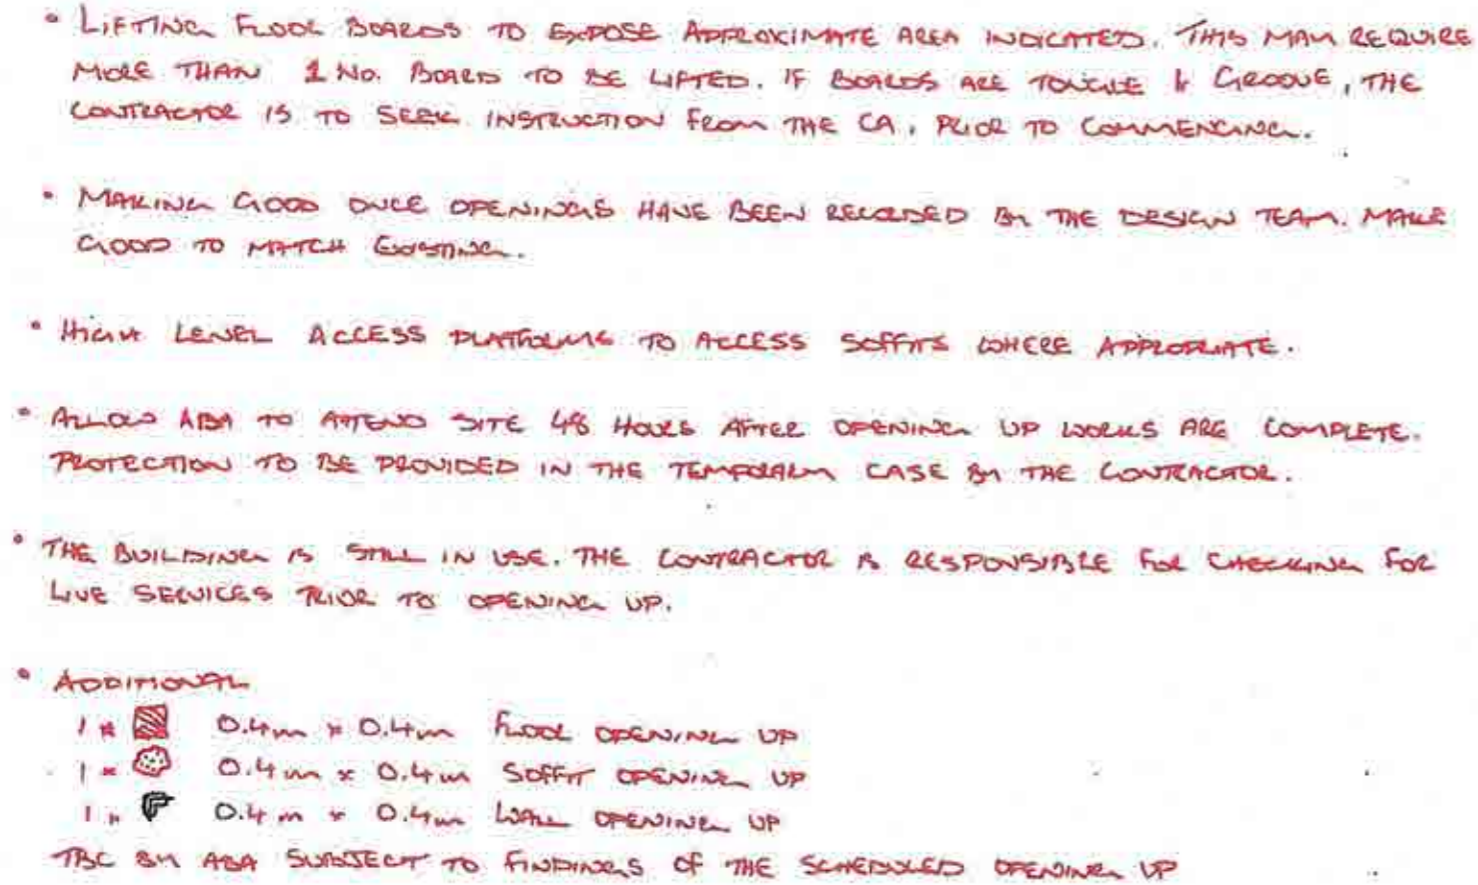 • LIFTING FLOOR BOARDS TO EXPOSE APPROXIMATE AREA INDICATED. THIS MAY REQUIRE
MORE THAN 1 NO. BOARD TO BE LIFTED. IF BOARDS ARE TONGUE & GROOVE, THE
CONTRACTOR IS TO SEEK INSTRUCTION FROM THE CA, PRIOR TO COMMENCING.
• MAKING GOOD ONCE OPENINGS HAVE BEEN RECORDED BY THE DESIGN TEAM. MAKE
GOOD TO MATCH EXISTING.
• HIGH LEVEL ACCESS PLATFORMS TO ACCESS SOFFITS WHERE APPROPRIATE.
• ALLOW ABA TO ATTEND SITE 48 HOURS AFTER OPENING UP WORKS ARE COMPLETE.
PROTECTION TO BE PROVIDED IN THE TEMPORARY CASE BY THE CONTRACTOR.
• THE BUILDING IS STILL IN USE. THE CONTRACTOR IS RESPONSIBLE FOR CHECKING FOR
LIVE SERVICES PRIOR TO OPENING UP.
• ADDITIONAL
1 x 0.4m x 0.4m FLOOR OPENING UP
1 x 0.4m x 0.4m SOFFIT OPENING UP
1 x 0.4m x 0.4m WALL OPENING UP
TBC BY ABA SUBJECT TO FINDINGS OF THE SCHEDULED OPENING UP